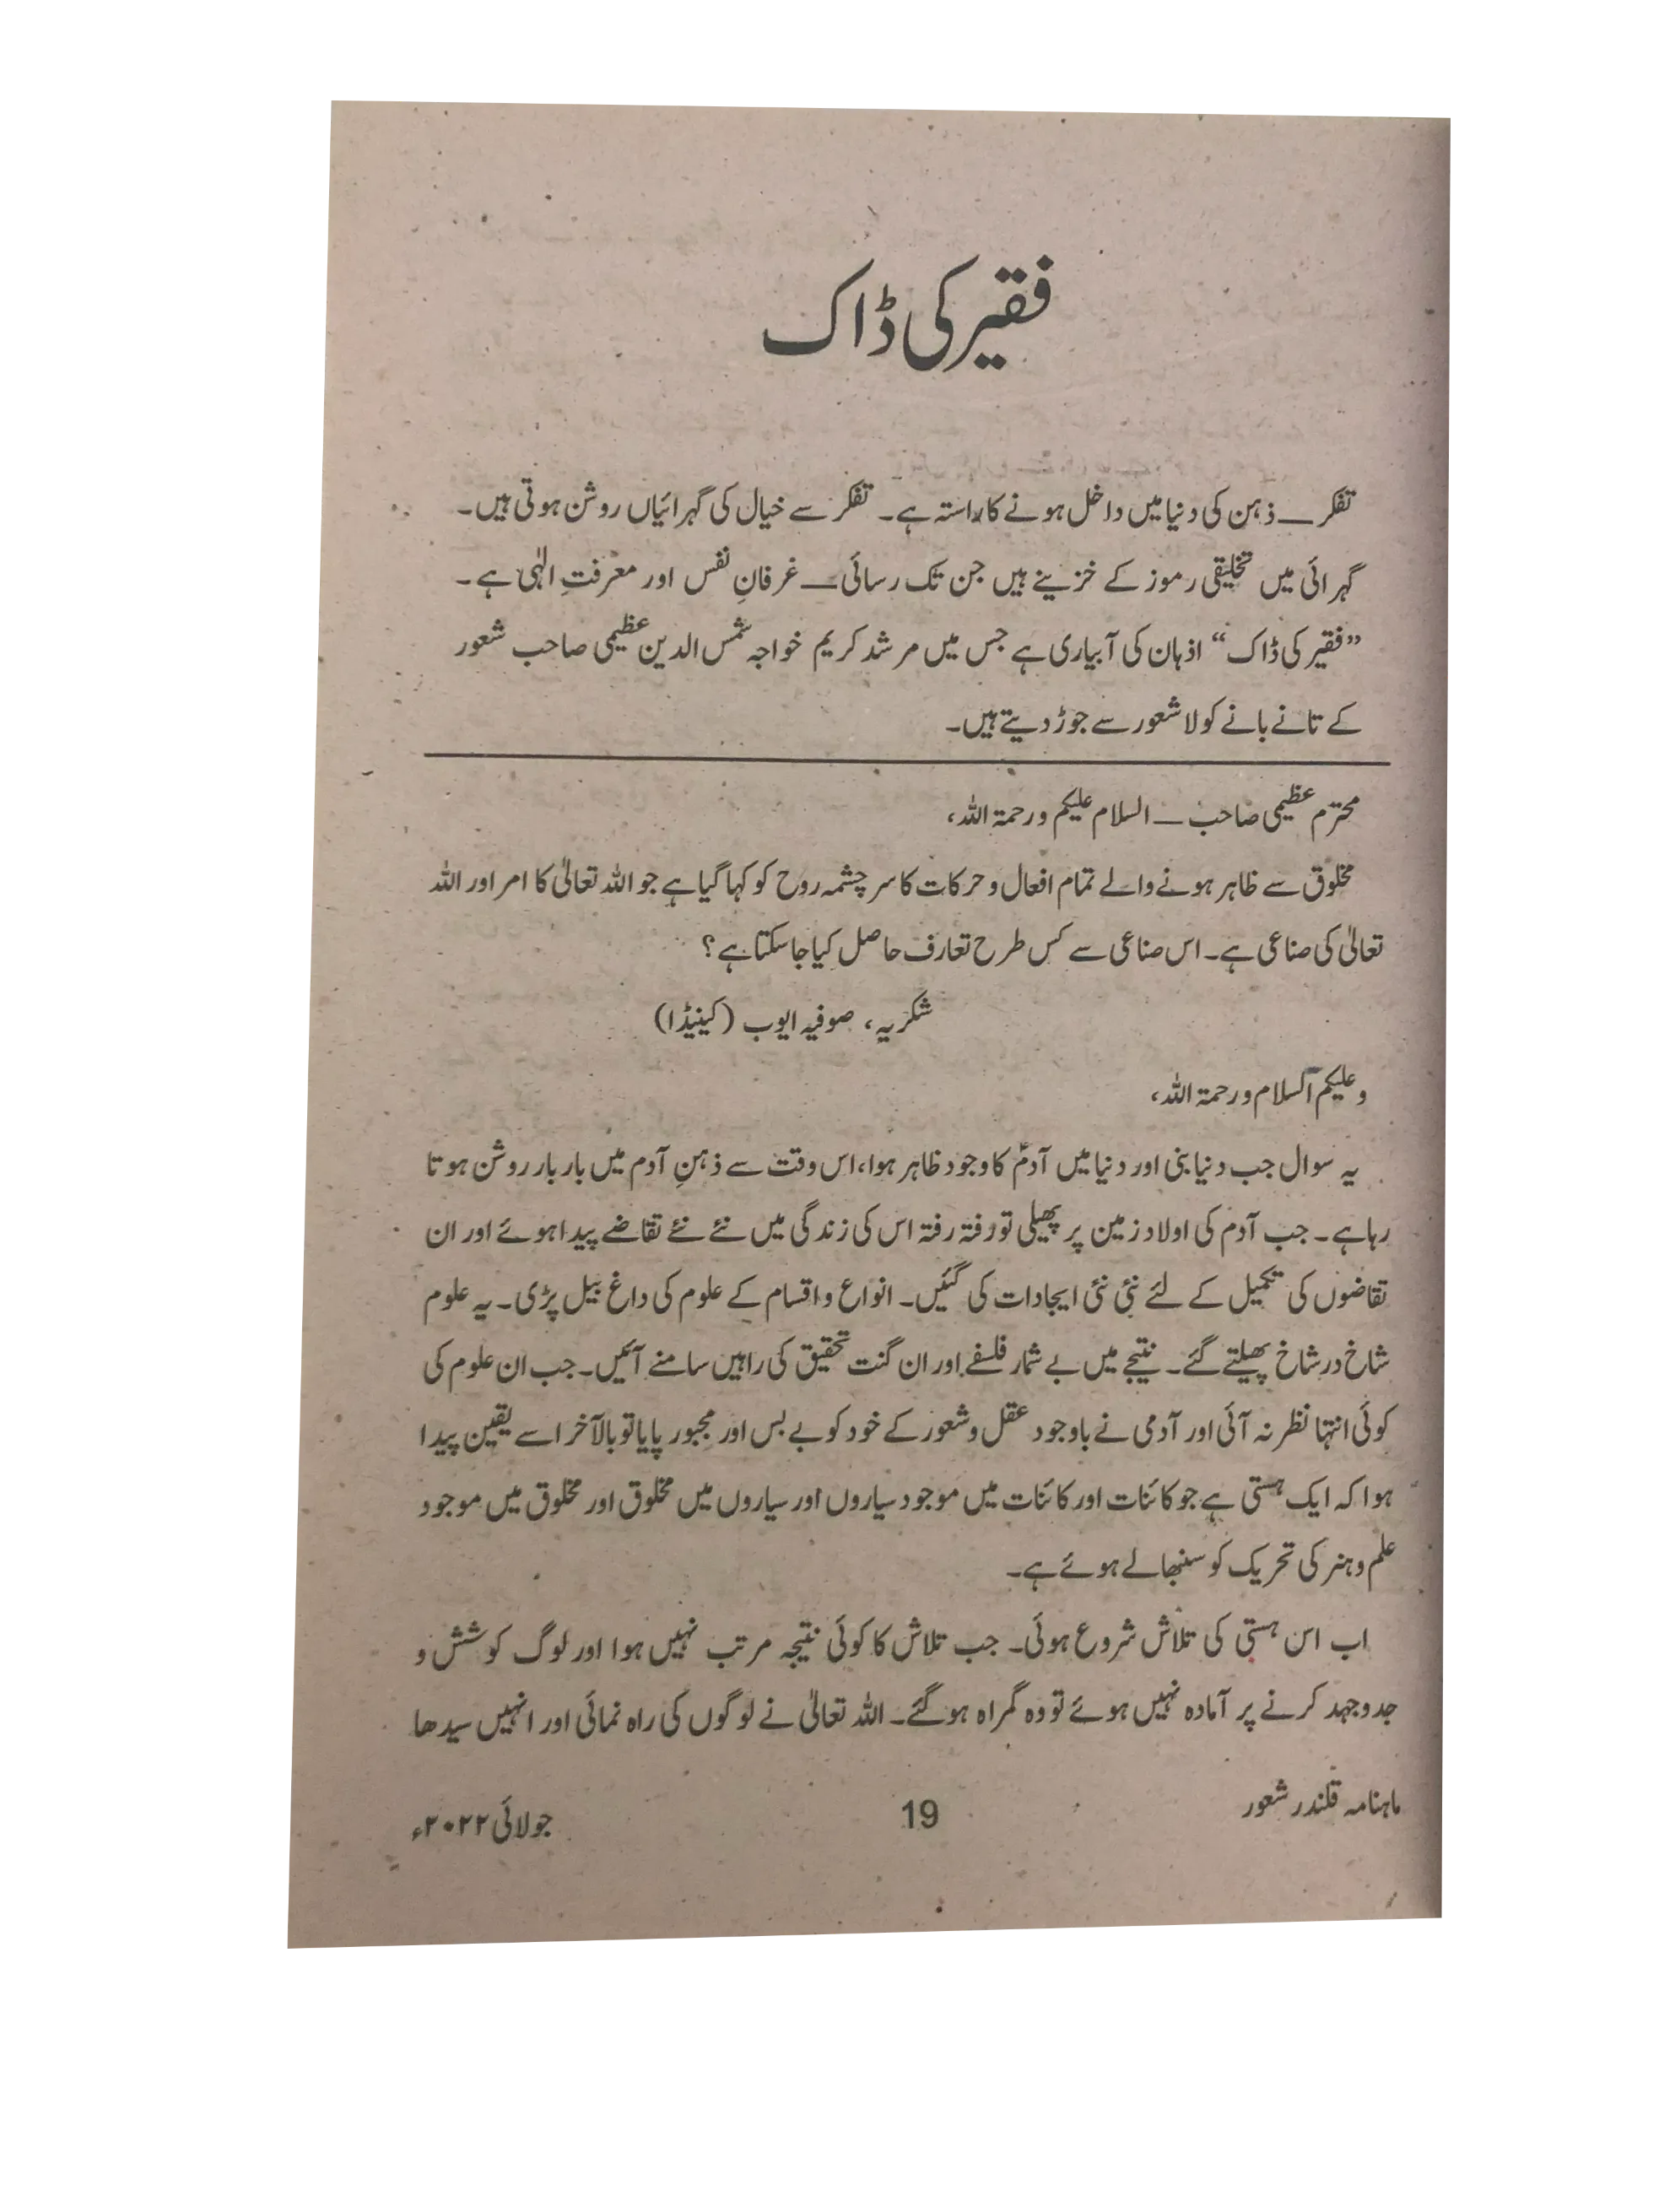 فقیر کی ڈاک
تفکر ــ ذہن کی دنیا میں داخل ہونے کا راستہ ہے۔ تفکر سے خیال کی گہرائیاں روشن ہوتی ہیں۔
گہرائی میں تخلیقی رموز کے خزینے ہیں جن تک رسائی ــ عرفانِ نفس اور معرفتِ الٰہی ہے۔
”فقیر کی ڈاک“ اذہان کی آبیاری ہے جس میں مرشد کریم خواجہ شمس الدین عظیمی صاحب شعور
کے تانے بانے کو لاشعور سے جوڑ دیتے ہیں۔
محترم عظیمی صاحب ــ السلام علیکم ورحمۃ اللہ،
مخلوق سے ظاہر ہونے والے تمام افعال و حرکات کا سرچشمہ روح کو کہا گیا ہے جو اللہ تعالیٰ کا امر اور اللہ
تعالیٰ کی صناعی ہے۔ اس صناعی سے کس طرح تعارف حاصل کیا جا سکتا ہے؟
شکریہ، صوفیہ ایوب (کینیڈا)
وعلیکم السلام ورحمۃ اللہ،
یہ سوال جب دنیا بنی اور دنیا میں آدمؑ کا وجود ظاہر ہوا، اس وقت سے ذہنِ آدم میں بار بار روشن ہوتا
رہا ہے۔ جب آدم کی اولاد زمین پر پھیلی تو رفتہ رفتہ اس کی زندگی میں نئے نئے تقاضے پیدا ہوئے اور ان
تقاضوں کی تکمیل کے لئے نئی نئی ایجادات کی گئیں۔ انواع و اقسام کے علوم کی داغ بیل پڑی۔ یہ علوم
شاخ در شاخ پھیلتے گئے۔ نتیجے میں بے شمار فلسفے اور ان گنت تحقیق کی راہیں سامنے آئیں۔ جب ان علوم کی
کوئی انتہا نظر نہ آئی اور آدمی نے باوجود عقل و شعور کے خود کو بے بس اور مجبور پایا تو بالآخر اسے یقین پیدا
ہوا کہ ایک ہستی ہے جو کائنات اور کائنات میں موجود سیاروں اور سیاروں میں مخلوق اور مخلوق میں موجود
علم و ہنر کی تحریک کو سنبھالے ہوئے ہے۔
اب اس ہستی کی تلاش شروع ہوئی۔ جب تلاش کا کوئی نتیجہ مرتب نہیں ہوا اور لوگ کوشش و
جدوجہد کرنے پر آمادہ نہیں ہوئے تو وہ گمراہ ہو گئے۔ اللہ تعالیٰ نے لوگوں کی راہ نمائی اور انہیں سیدھا
ماہنامہ قلندر شعور
19
جولائی ۲۰۲۲ء